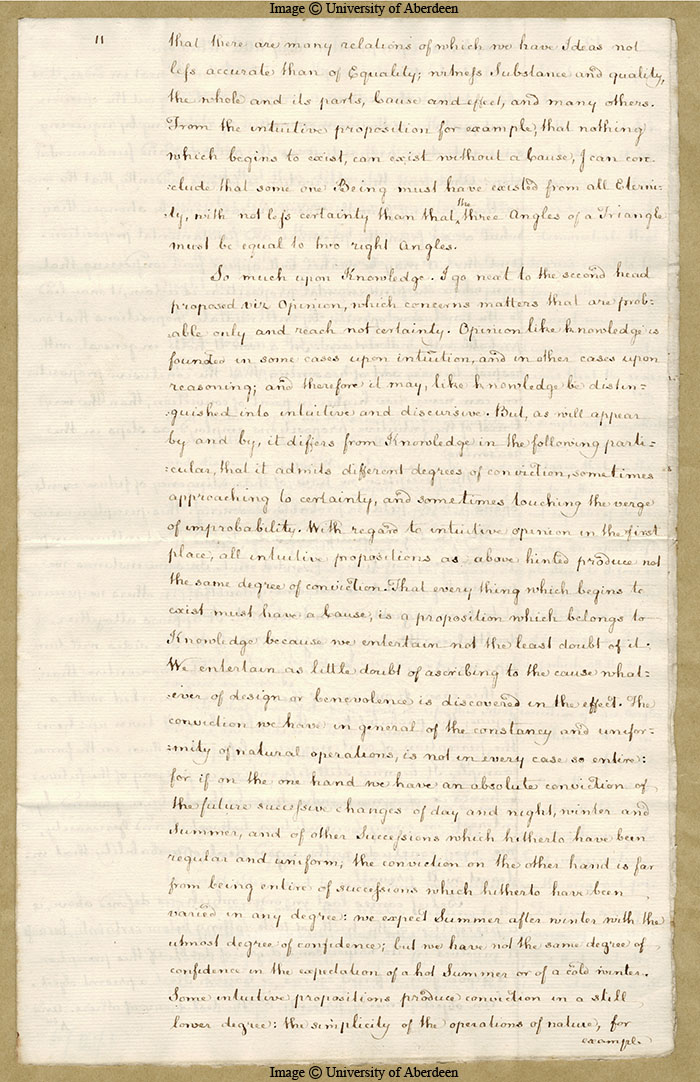 Image © University of Aberdeen
11
that there are many relations of which we have Ideas not
less accurate than of Equality; witness Substance and quality,
the whole and its parts, Cause and effect, and many others.
From the intuitive proposition for example, that nothing
which begins to exist, can exist without a Cause, I can con-
:clude that some one Being must have existed from all Eterni-
:ty, with not less certainty than that the three Angles of a Triangle
must be equal to two right Angles.
So much upon Knowledge. I go next to the second head
proposed viz Opinion, which concerns matters that are prob-
:able only and reach not certainty. Opinion like knowledge is
founded in some cases upon intuition, and in other cases upon
reasoning; and therefore it may, like knowledge be distin-
:guished into intuitive and discursive. But, as will appear
by and by, it differs from Knowledge in the following parti-
:cular, that it admits different degrees of conviction, sometimes
approaching to certainty, and sometimes touching the verge
of improbability. With regard to intuitive opinion in the first
place, all intuitive propositions as above hinted produce not
the same degree of conviction. That every thing which begins to
exist must have a Cause, is a proposition which belongs to
Knowledge because we entertain not the least doubt of it.
We entertain as little doubt of ascribing to the cause what-
:ever of design or benevolence is discovered in the effect. The
conviction we have in general of the constancy and unifor-
:mity of natural operations, is not in every case so entire:
for if on the one hand we have an absolute conviction of
the future successive changes of day and night, winter and
Summer, and of other Successions which hitherto have been
regular and uniform; the conviction on the other hand is far
from being entire of successions which hitherto have been
varied in any degree: we expect Summer after winter with the
utmost degree of confidence; but we have not the same degree of
confidence in the expectation of a hot Summer or of a cold winter.
Some intuitive propositions produce conviction in a still
lower degree: the simplicity of the operations of nature, for
exampl.
Image © University of Aberdeen